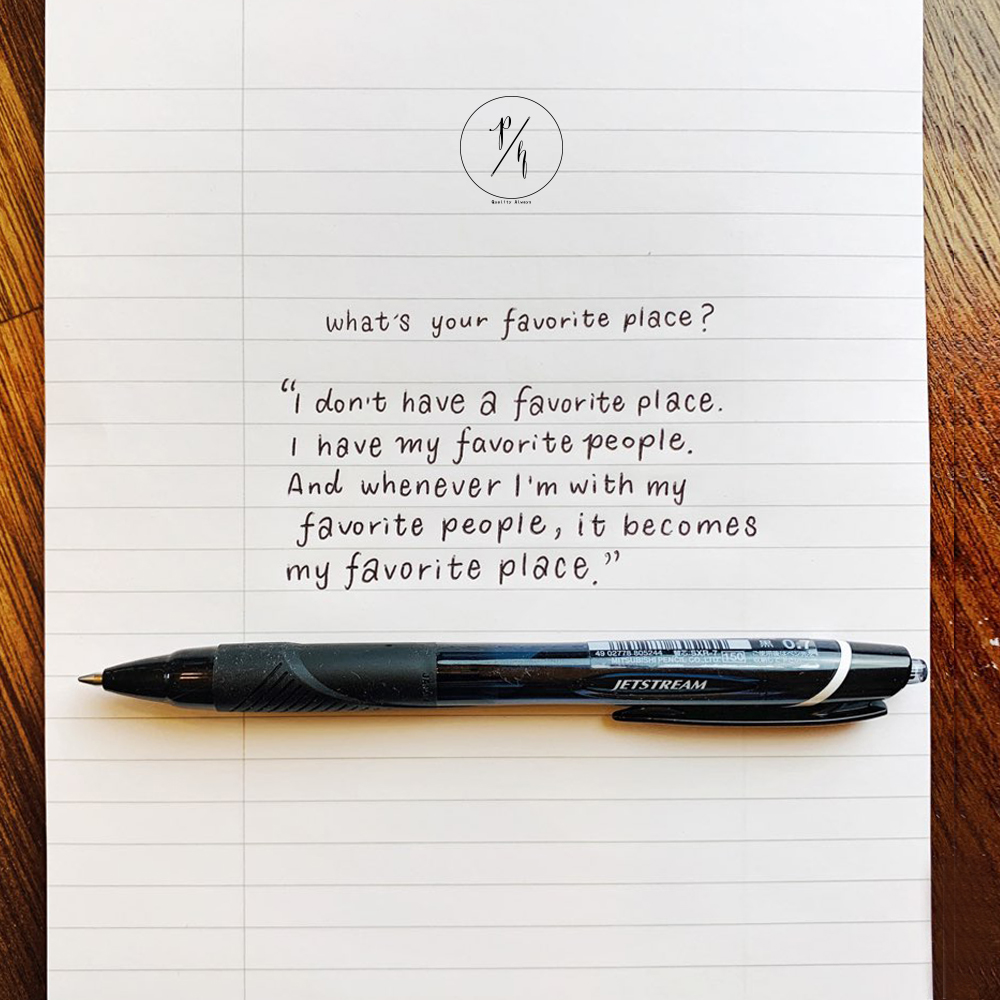 p/h
Quality Always
what's your favorite place?
“I don't have a favorite place.
I have my favorite people.
And whenever I'm with my
favorite people, it becomes
my favorite place.”
49 02778 805244
MITSUBISHI PENCIL CO., LTD.
0.7
JETSTREAM